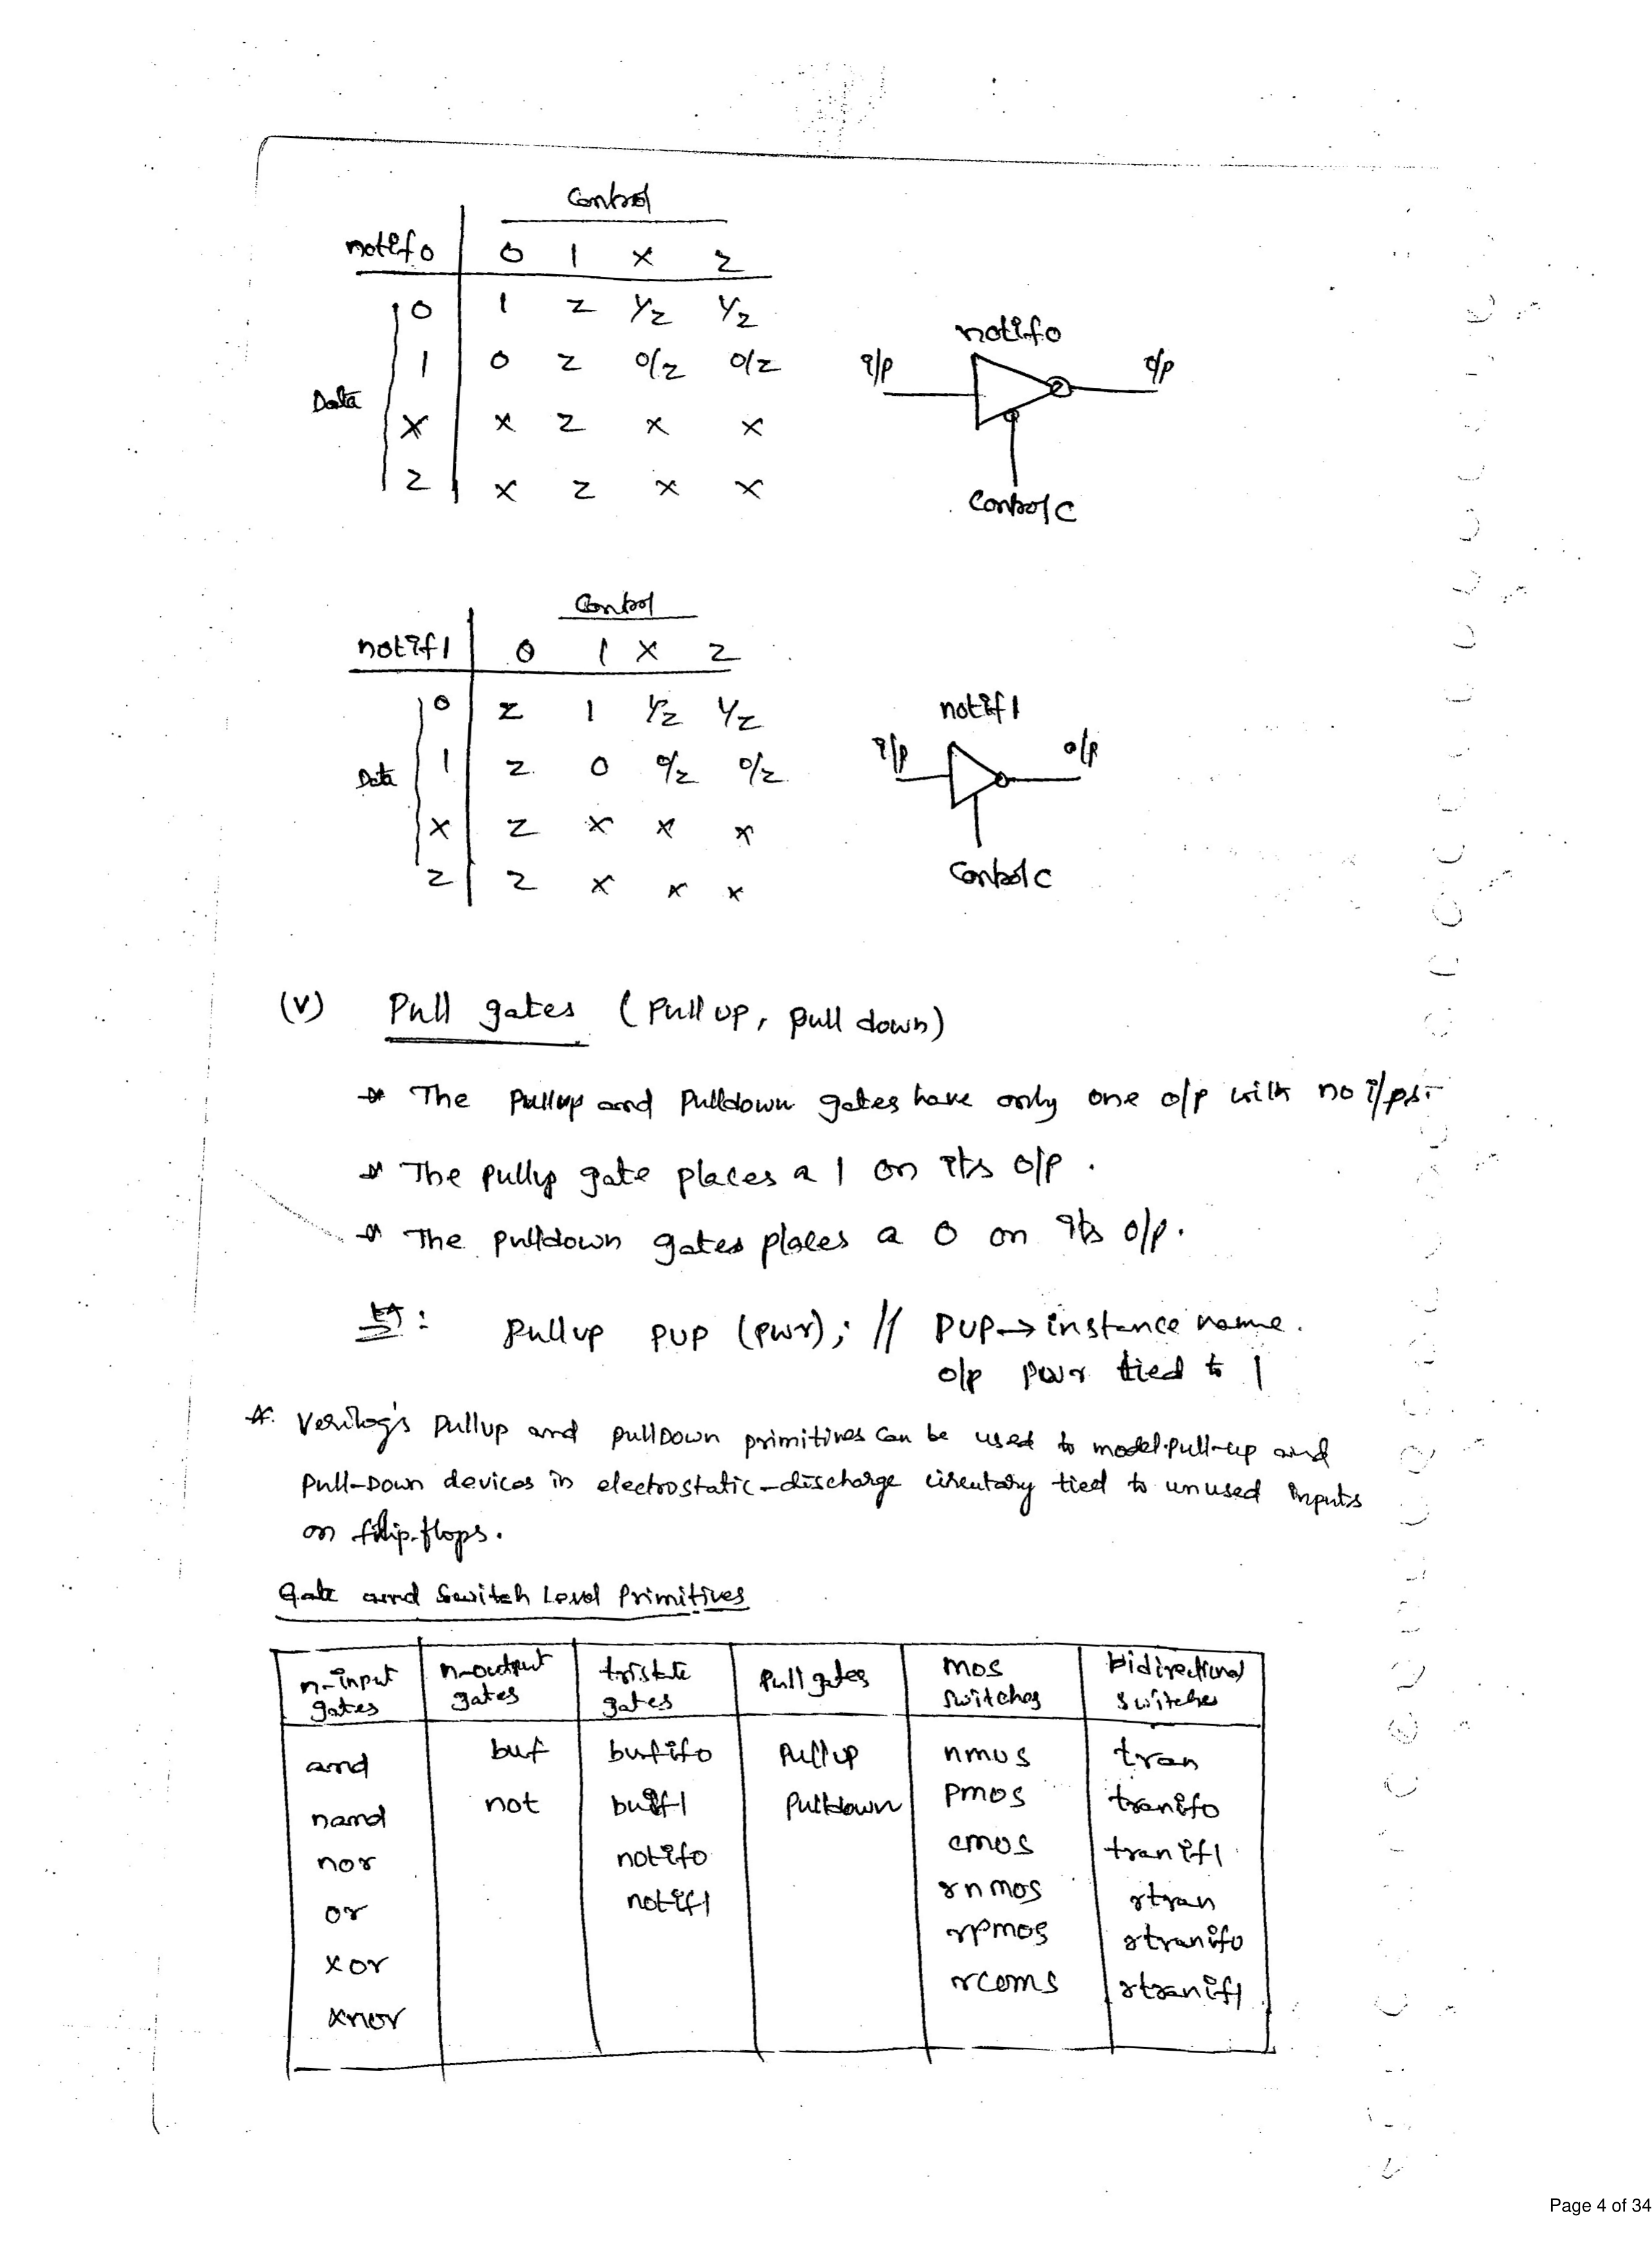 Control
notif0 0 1 x z
0 1 z 1/z 1/z
1 0 z 0/z 0/z
Data
x x z x x
z x z x x
notif0
i/p o/p
Control C
Control
notif1 0 1 x z
0 z 1 1/z 1/z
1 z 0 0/z 0/z
Data
x z x x x
z z x x x
notif1
i/p o/p
Control C
(v) Pull gates (Pull up, pull down)
* The Pullup and Pulldown gates have only one o/p with no i/ps.
* The pullup gate places a 1 on its o/p.
* The pulldown gates places a 0 on its o/p.
Ex: pullup pup (pwr); // pup→instance name.
o/p pwr tied to 1
*. Verilog's pullup and pullDown primitives can be used to model pull-up and
pull-Down devices in electrostatic-discharge circutary tied to unused inputs
on flip-flops.
Gate and Switch Level Primitives
n-input gates n-output gates tristate gates Pull gates mos switches bidirectional switches
and buf bufif0 Pullup nmos tran
nand not buif1 Pulldown pmos tranif0
nor notif0 cmos tranif1
or notif1 rnmos rtran
xor rpmos rtranif0
xnor rcoms rtranif1
Page 4 of 34